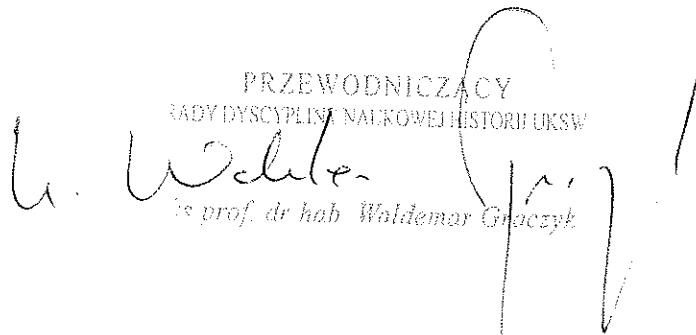 PRZEWODNICZĄCY
RADY DYSCYPLINY NAUKOWEJ HISTORII UKSW
ks prof. dr hab Waldemar Graczyk